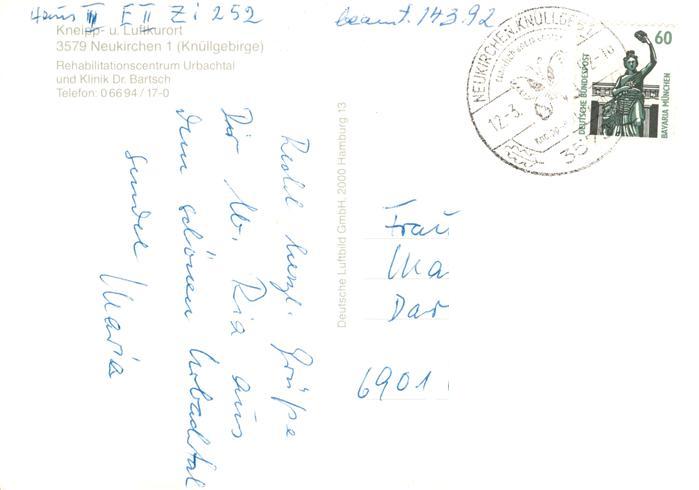 Haus II E II Zi 252
beamt. 14.3.92
Kneipp- u. Luftkurort
3579 Neukirchen 1 (Knüllgebirge)
Rehabilitationszentrum Urbachtal
und Klinik Dr. Bartsch
Telefon: 0 66 94 / 17-0
Recht herzl. Grüße
Dir lb. Ria aus
dem schönen Urbachtal
sendet Maria
Deutsche Luftbild GmbH, 2000 Hamburg 13
NEUKIRCHEN, KNÜLLGEB
12.-3.
35
60
DEUTSCHE BUNDESPOST
BAVARIA MÜNCHEN
Frau
Ma
Dar
6901